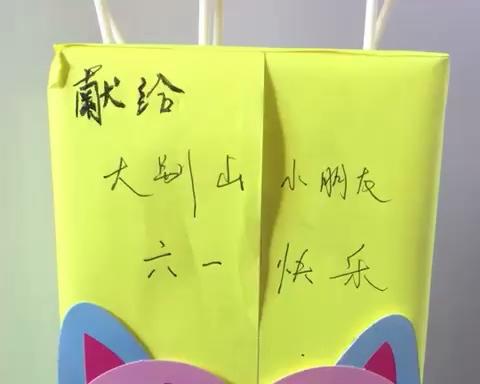 献给
大别山小朋友
六一快乐